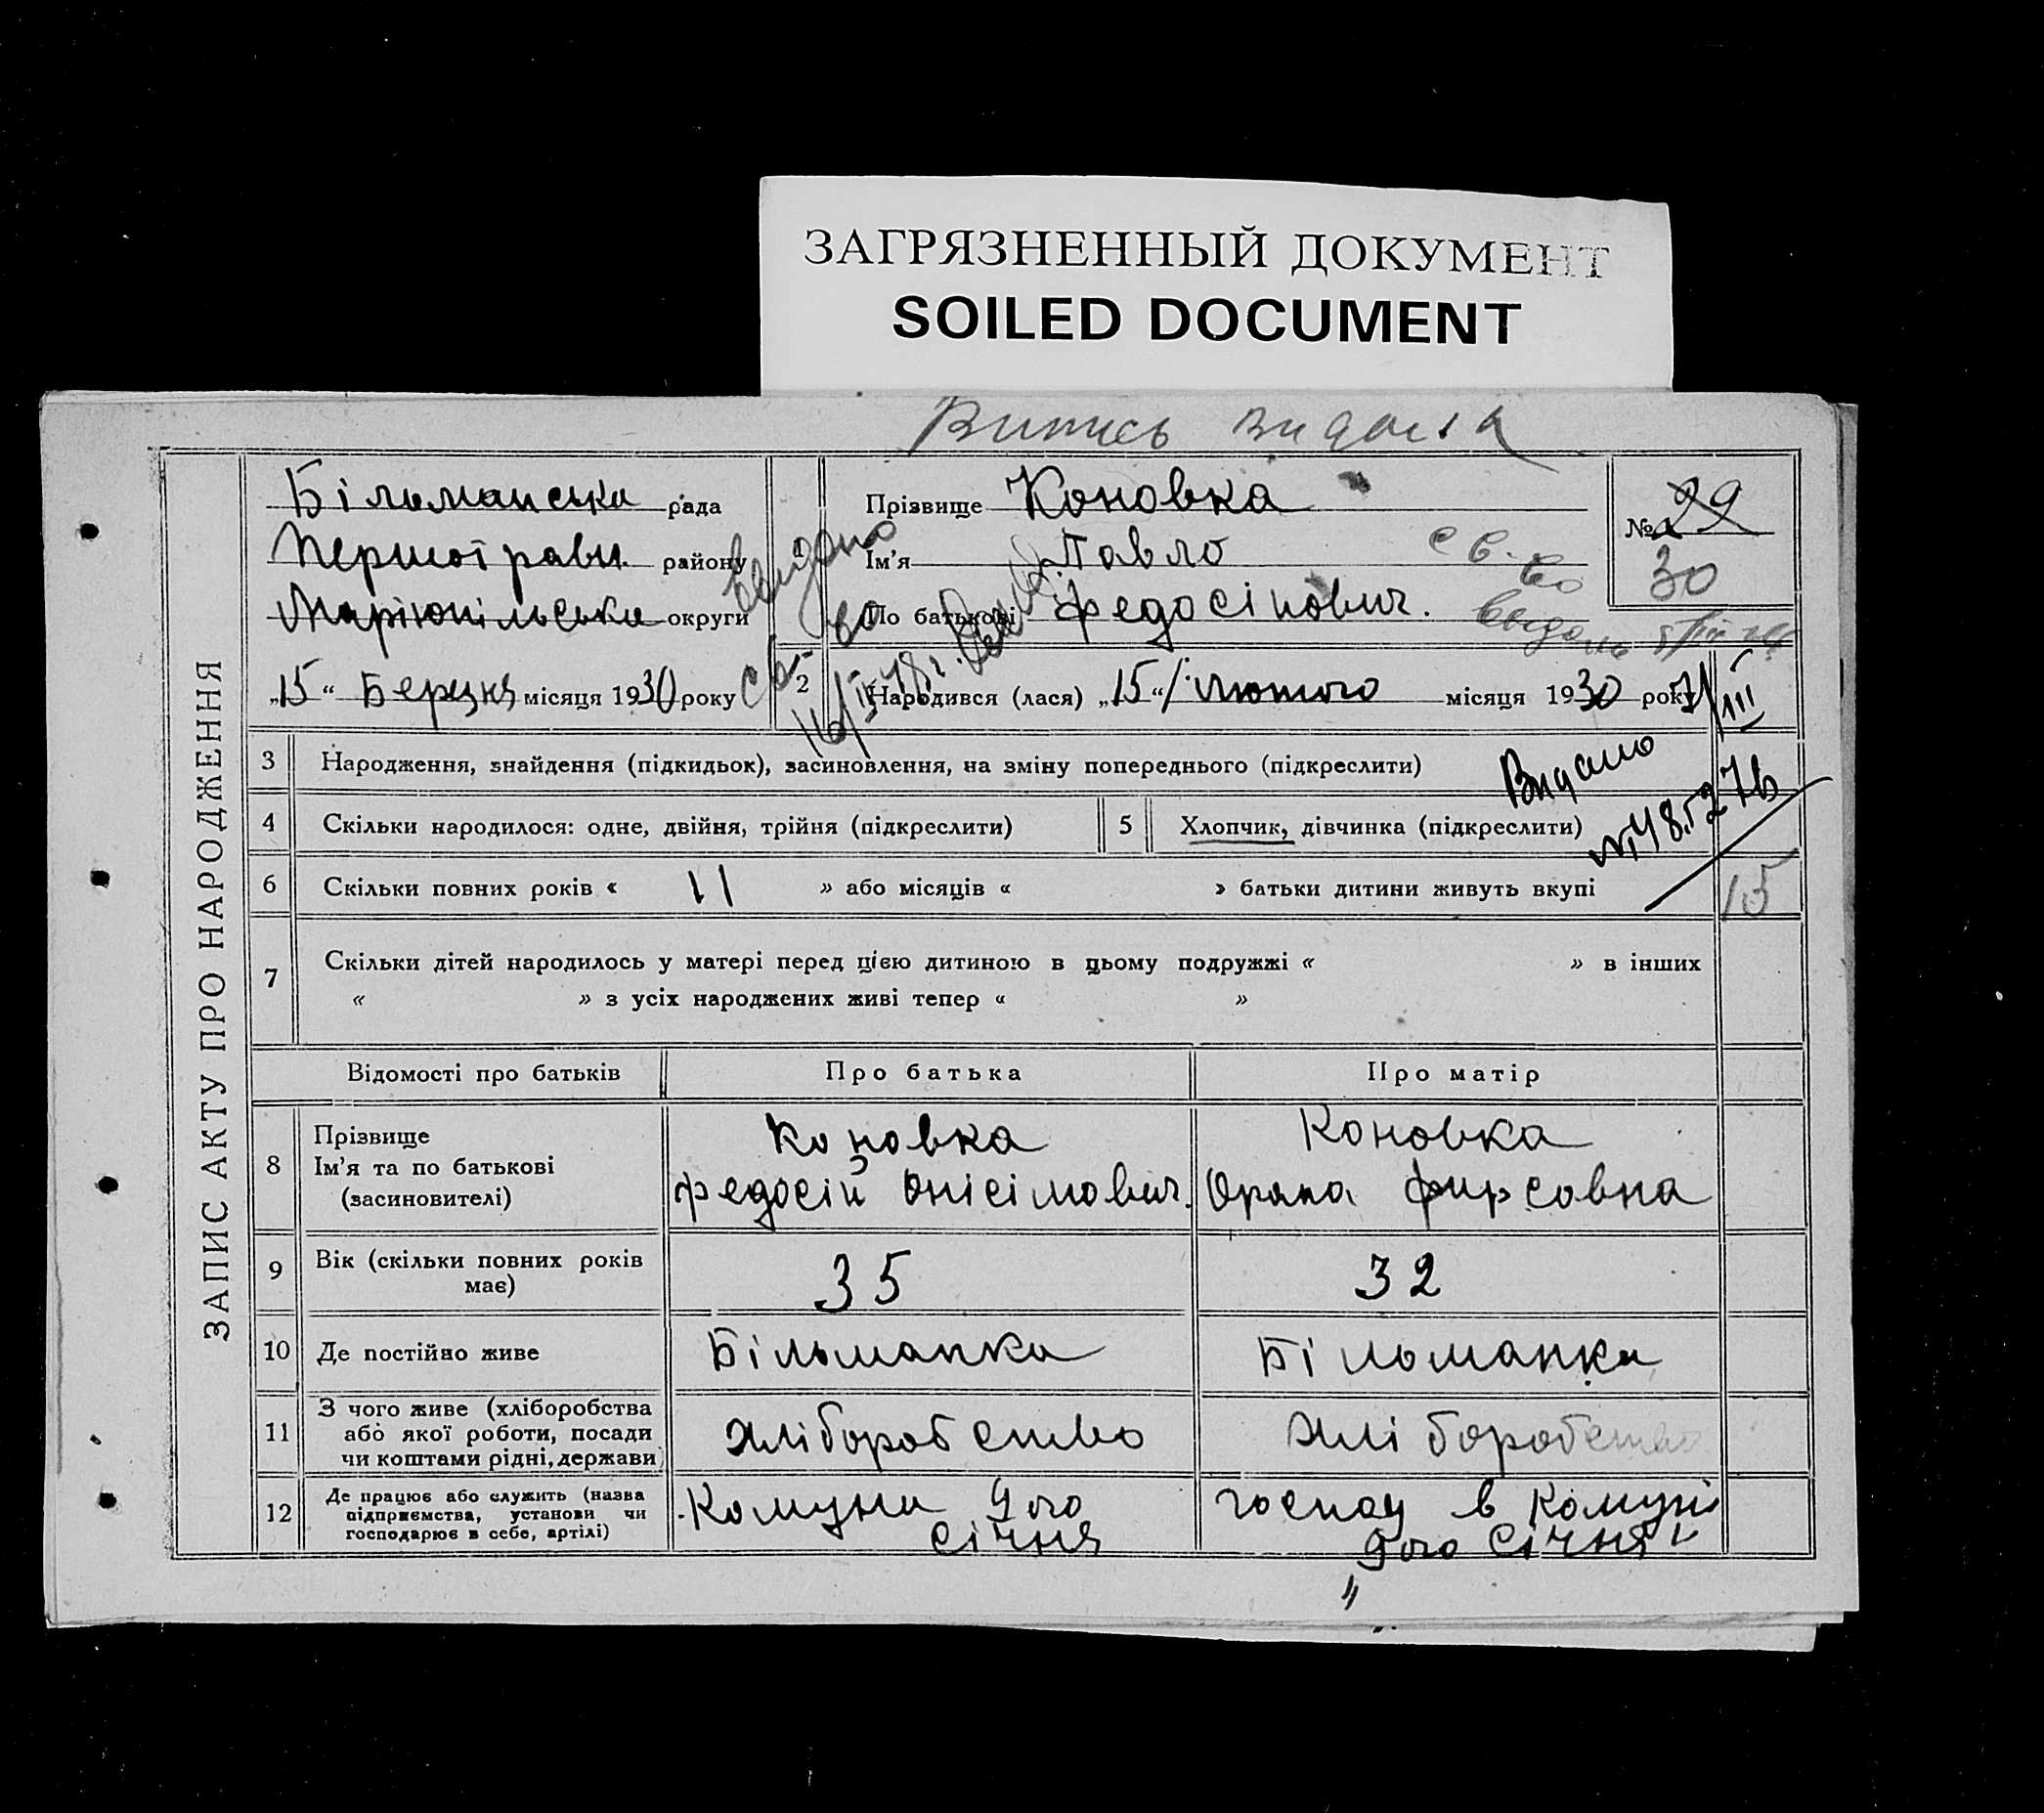 ЗАГРЯЗНЕННЫЙ ДОКУМЕНТ
SOILED DOCUMENT
Витись видана
ЗАПИС АКТУ ПРО НАРОДЖЕННЯ
Більманська рада
Першотравн. району
Маріюпільська округи
„15“ Березня місяця 1930 року
Прізвище Коновка
Ім’я Павло
По батькові Федосійович.
св-во
видано
№ 29
30
2 Народився (лася) „15“ Лютого місяця 1930 року
3 Народження, знайдення (підкидьок), засиновлення, на зміну попереднього (підкреслити)
Видано
7/III
4 Скільки народилося: одне, двійня, трійня (підкреслити)
5 Хлопчик, дівчинка (підкреслити)
6 Скільки повних років « 11 » або місяців « » батьки дитини живуть вкупі
15
7 Скільки дітей народилось у матері перед цією дитиною в цьому подружжі « » в інших
« » з усіх народжених живі тепер « »
Відомості про батьків Про батька Про матір
8 Прізвище
Ім’я та по батькові
(засиновителі)
Коновка
Федосій Онісімович.
Коновка
Орина Фирсовна
9 Вік (скільки повних років
має)
35 32
10 Де постійно живе Більманка Більманка
11 З чого живе (хліборобства
або якої роботи, посади
чи коштами рідні, держави)
Хліборобство Хліборобство
12 Де працює або служить (назва
підприємства, установи чи
господарює в себе, артілі)
Комуна 9го
Січня
господ в Комуні
9го Січня